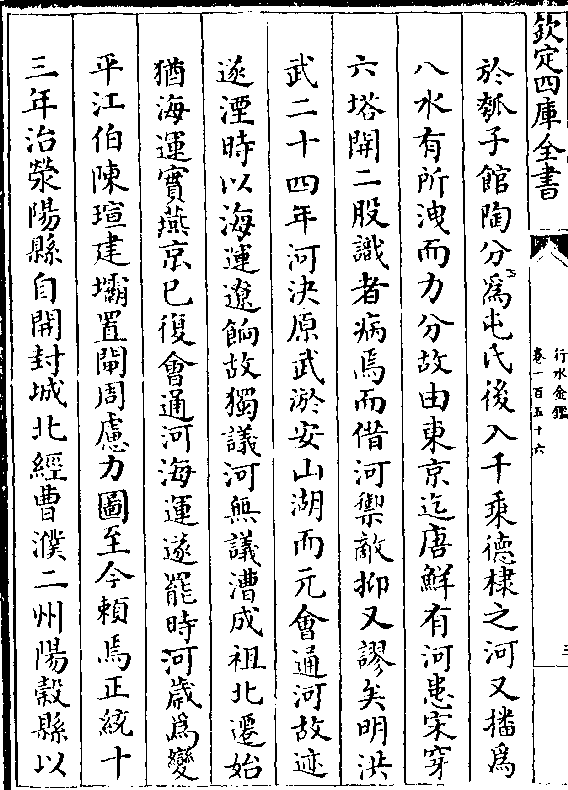 欽定四庫全書
行水金鑑
卷一百五十六
三
於瓠子館陶分爲屯氏後入千乘德棣之河又播爲
八水有所洩而力分故由東京迄唐鮮有河患宋穿
六塔開二股識者病焉而借河禦敵抑又謬矣明洪
武二十四年河决原武淤安山湖而元會通河故迹
遂湮時以海運遼餉故獨議河無議漕成祖北遷始
猶海運實燕京已復會通河海運遂罷時河歲爲變
平江伯陳瑄建壩置閘周慮力圖至今賴焉正統十
三年治滎陽縣自開封城北經曹濮二州陽穀縣以